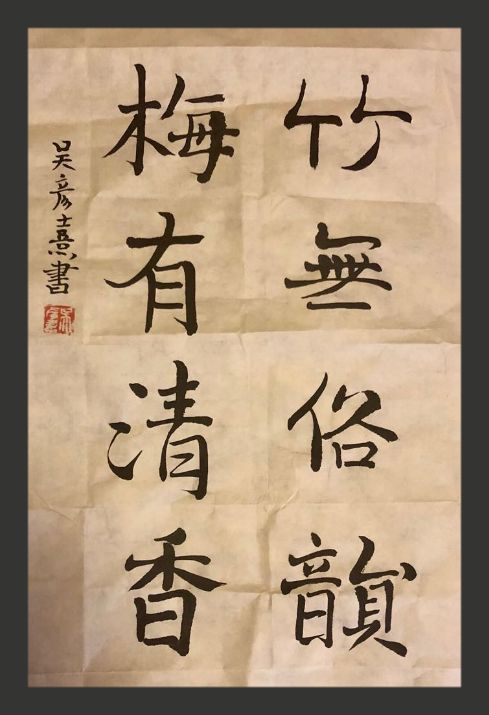 竹無俗韻
梅有清香
吳彥熹書